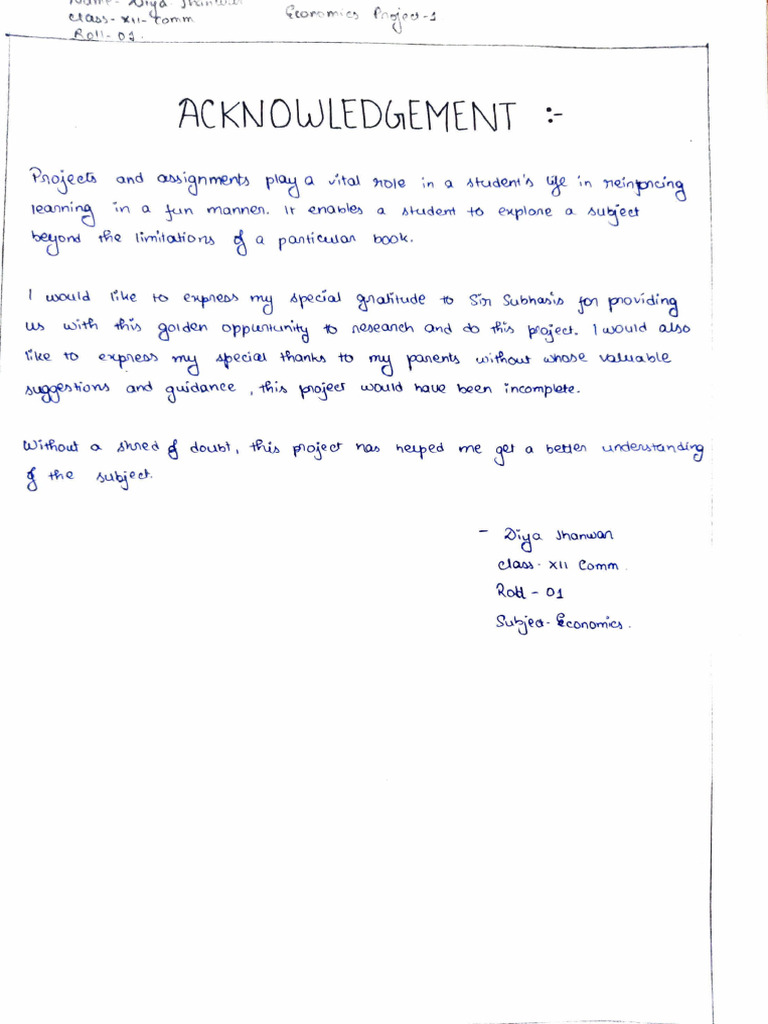 Name- Diya Jhanwar
Class- XII- Comm
Economics Project-1
Roll- 01.
ACKNOWLEDGEMENT :-
Projects and assignments play a vital role in a student's life in reinforcing
learning in a fun manner. It enables a student to explore a subject
beyond the limitations of a particular book.
I would like to express my special gratitude to Sir Subhasis for providing
us with this golden oppurtunity to research and do this project. I would also
like to express my special thanks to my parents without whose valuable
suggestions and guidance, this project would have been incomplete.
Without a shred of doubt, this project has helped me get a better understanding
of the subject.
- Diya Jhanwar
Class- XII Comm.
Roll - 01
Subject- Economics.